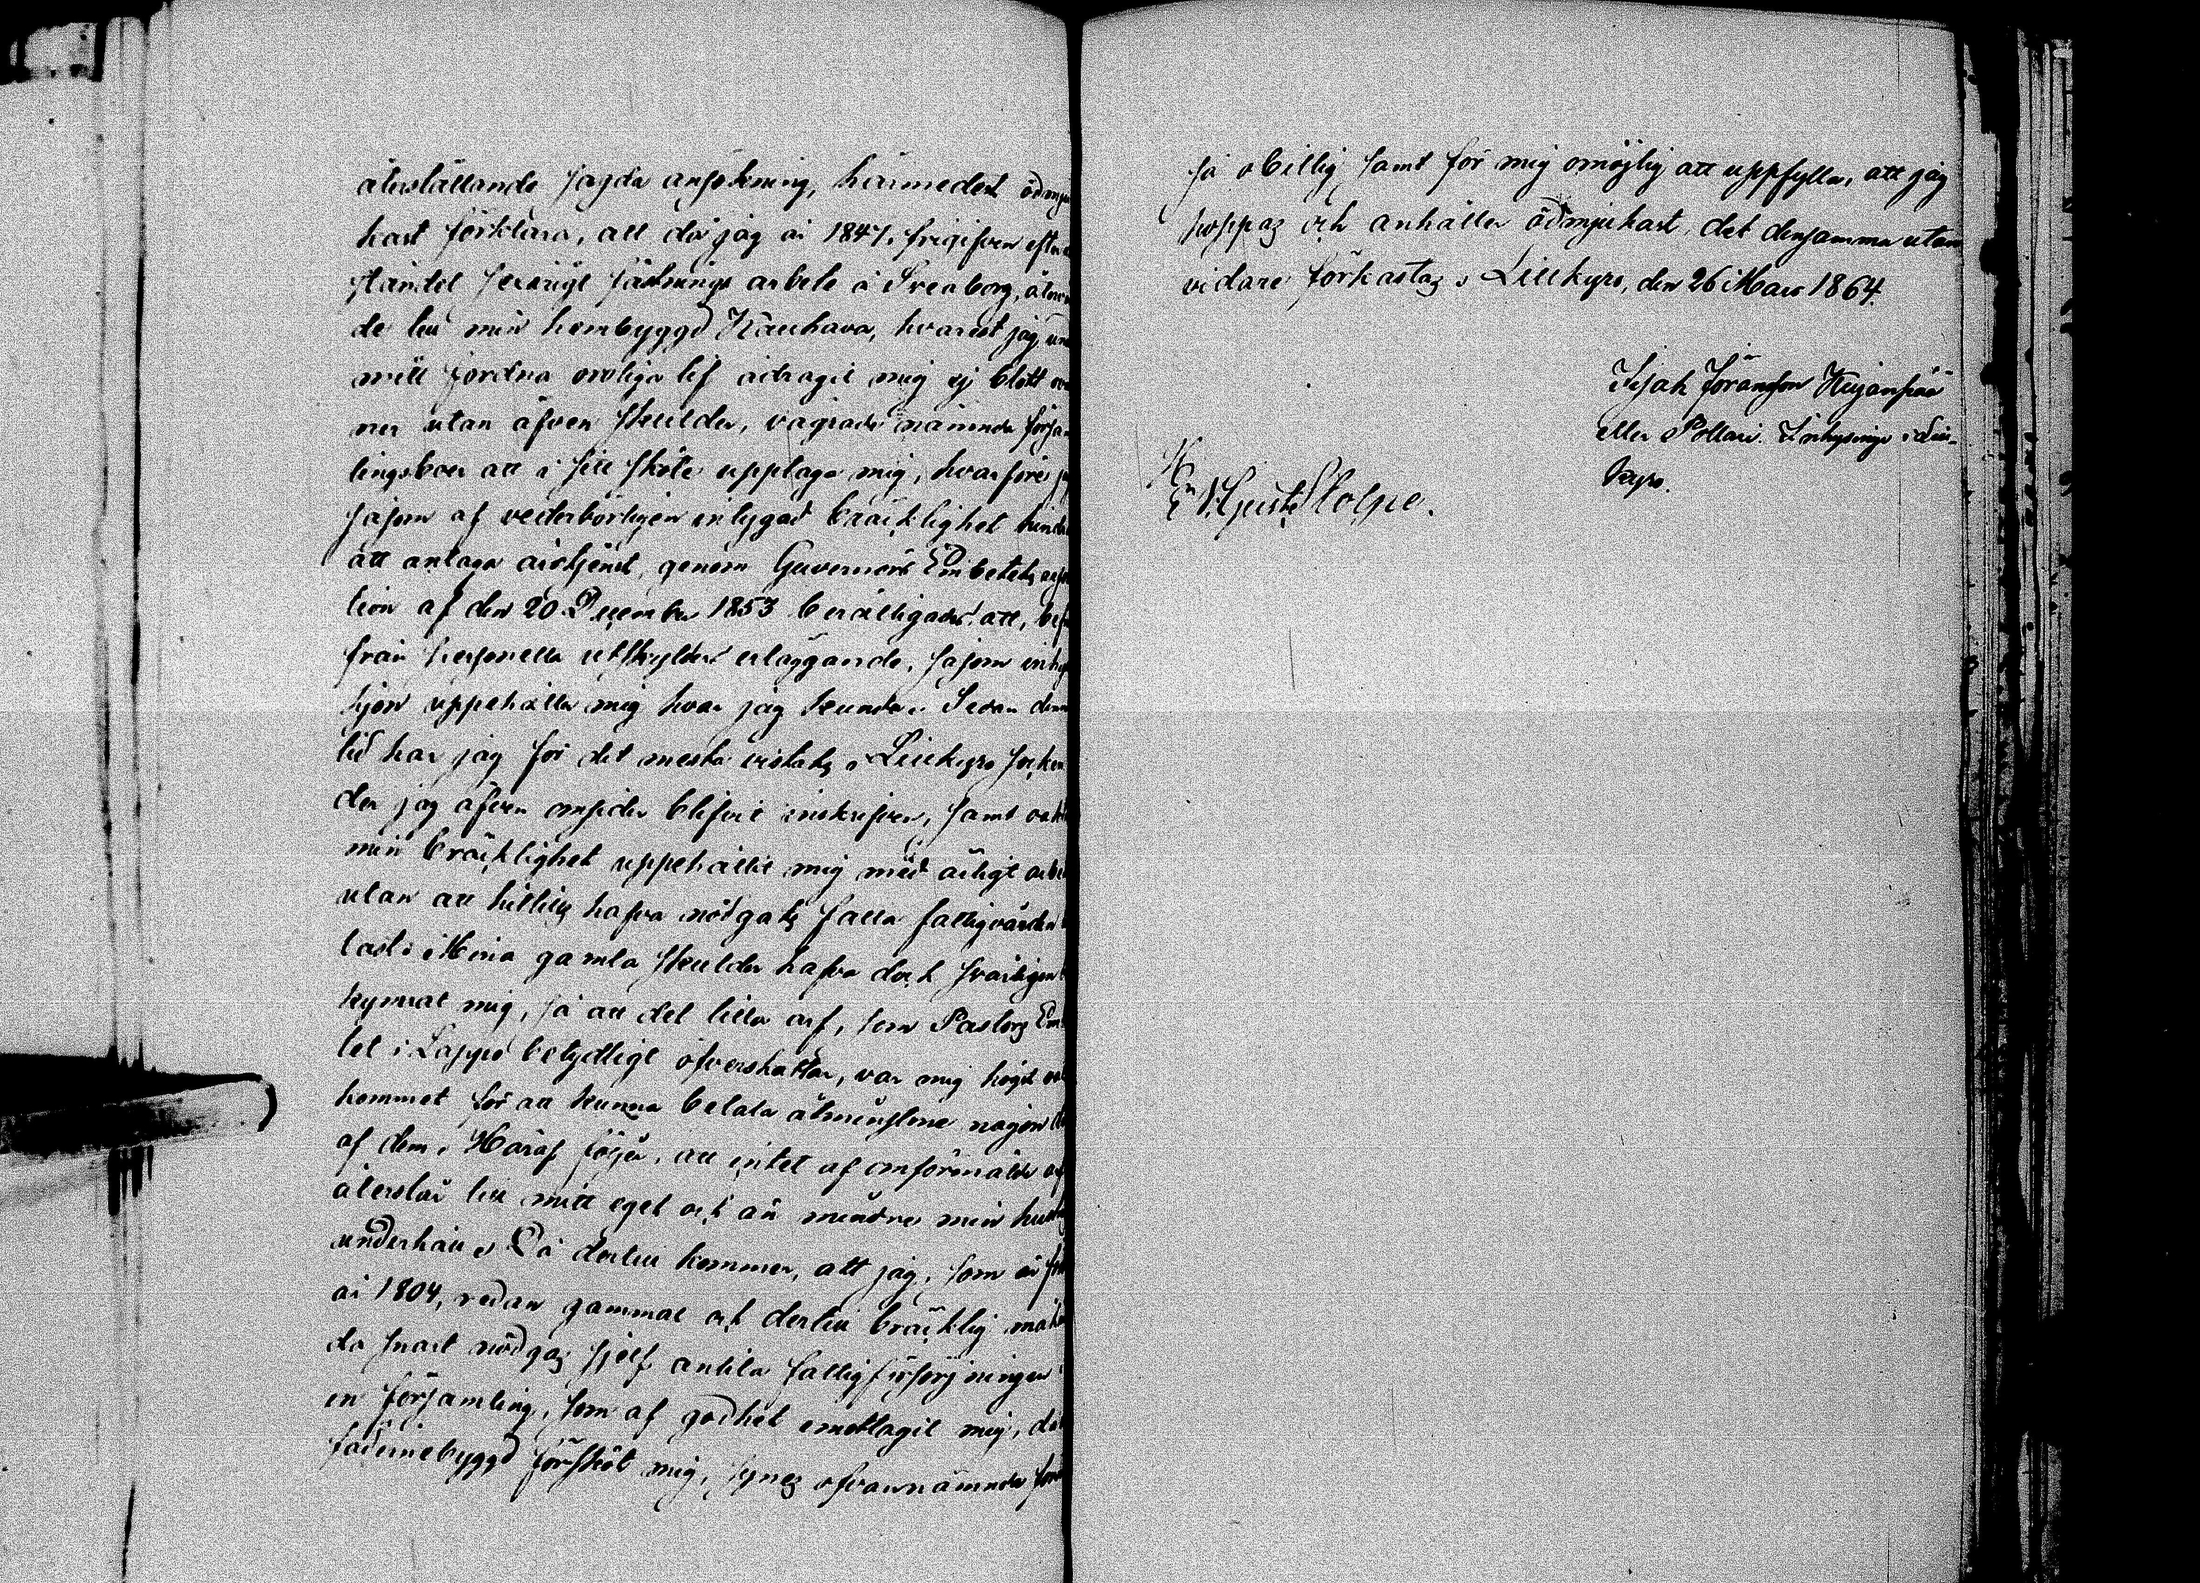 återställande sagda ansökning, härmedelst ödmju
kast förklara, att då jag år 1847, frigifven efter
ståndet femårigt fästnings arbete å Sveaborg, återvän
de till min hembyggd Kauhava, hvarest jag, un
mitt fordna oroliga lif ådragit mig ej blott ovän
ner utan äfven skulder, vägrade nämnda försam
lingsboer att i sitt sköte upptaga mig, hvarföre jag
såsom af vederbörligen intygad bräcklighet hindra
att antaga årstjenst, genom Guvernörs Embetets reso
lution af den 20 December 1853 berättigades att, befri
från personella utskylders erläggande, såsom inhyses
hjon uppehålla mig hvar jag kunde. Sedan denna
tid har jag för det mesta vistats i Lillkyro socken
der jag äfven omsider blifvit inskrifven, samt oaktadt
min bräcklighet uppehållit mig med ärligt arbete
utan att hittills hafva nödgats falla fattigvården till
last. Mina gamla skulder hafva dock svårligen be
kymrat mig, så att det lilla arf, som Pastors Embe
tet i Lappo betydligt öfverskattar, var mig högst väl
kommet för att kunna betala åtminstone någon del
af dem. Häraf följer, att intet af omförmälde arf
återstår till mitt eget och än mindre min hustrus
underhåll. Då dertill kommer, att jag, som är född
år 1804, redan gammal och dertill bräcklig måhän
da snart nödgas sjelf anlita fattigförsörjningen i
en församling, som af godhet emottagit mig, då
fädernebyggd försköt mig, synes ofvannämnda fordran
så obillig samt för mig omöjlig att uppfylla, att jag
hoppas och anhåller ödmjukast, det densamma utan
vidare förkastas. Lillkyro, den 26 Mars 1864.
Isak Jöransson Kujanpää
eller Pollari. Inhysing i Lill-
kyro.
Gust. Stolpe.